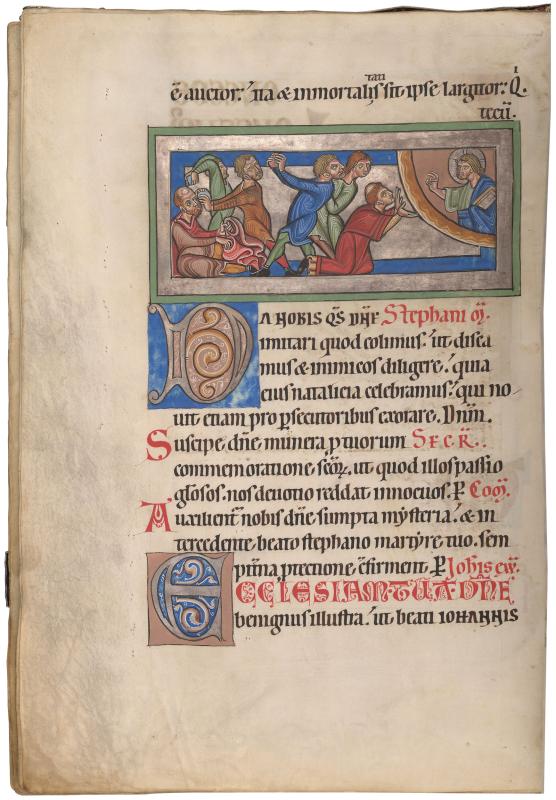 ē auctor. ita & inmortalitatis sit ipse largitor. Q i
tecū.
DA NOBIS QS DNE Stephani m̄.
imitari quod colimus. ut disca
mus & inimicos diligere. quia
eius natalicia celebramus. qui no
uit etiam pro psecutoribus exorare. Dnm̄.
Suscipe dn̄e munera p tuorum SECR.
commemoratione scōꝝ. ut quod illos passio
gl̄osos. nos deuotio reddat innocuos. P Com̄.
Auxilient̄ nobis dn̄e sumpta mysteria. & in
tercedente beato stephano martyre tuo. sem
pit̄na ptectione c̄firment. P Iohis ew̄.
ECCLESIAM TUĀ DN̄E
benignus illustra. ut beati IOHANNIS